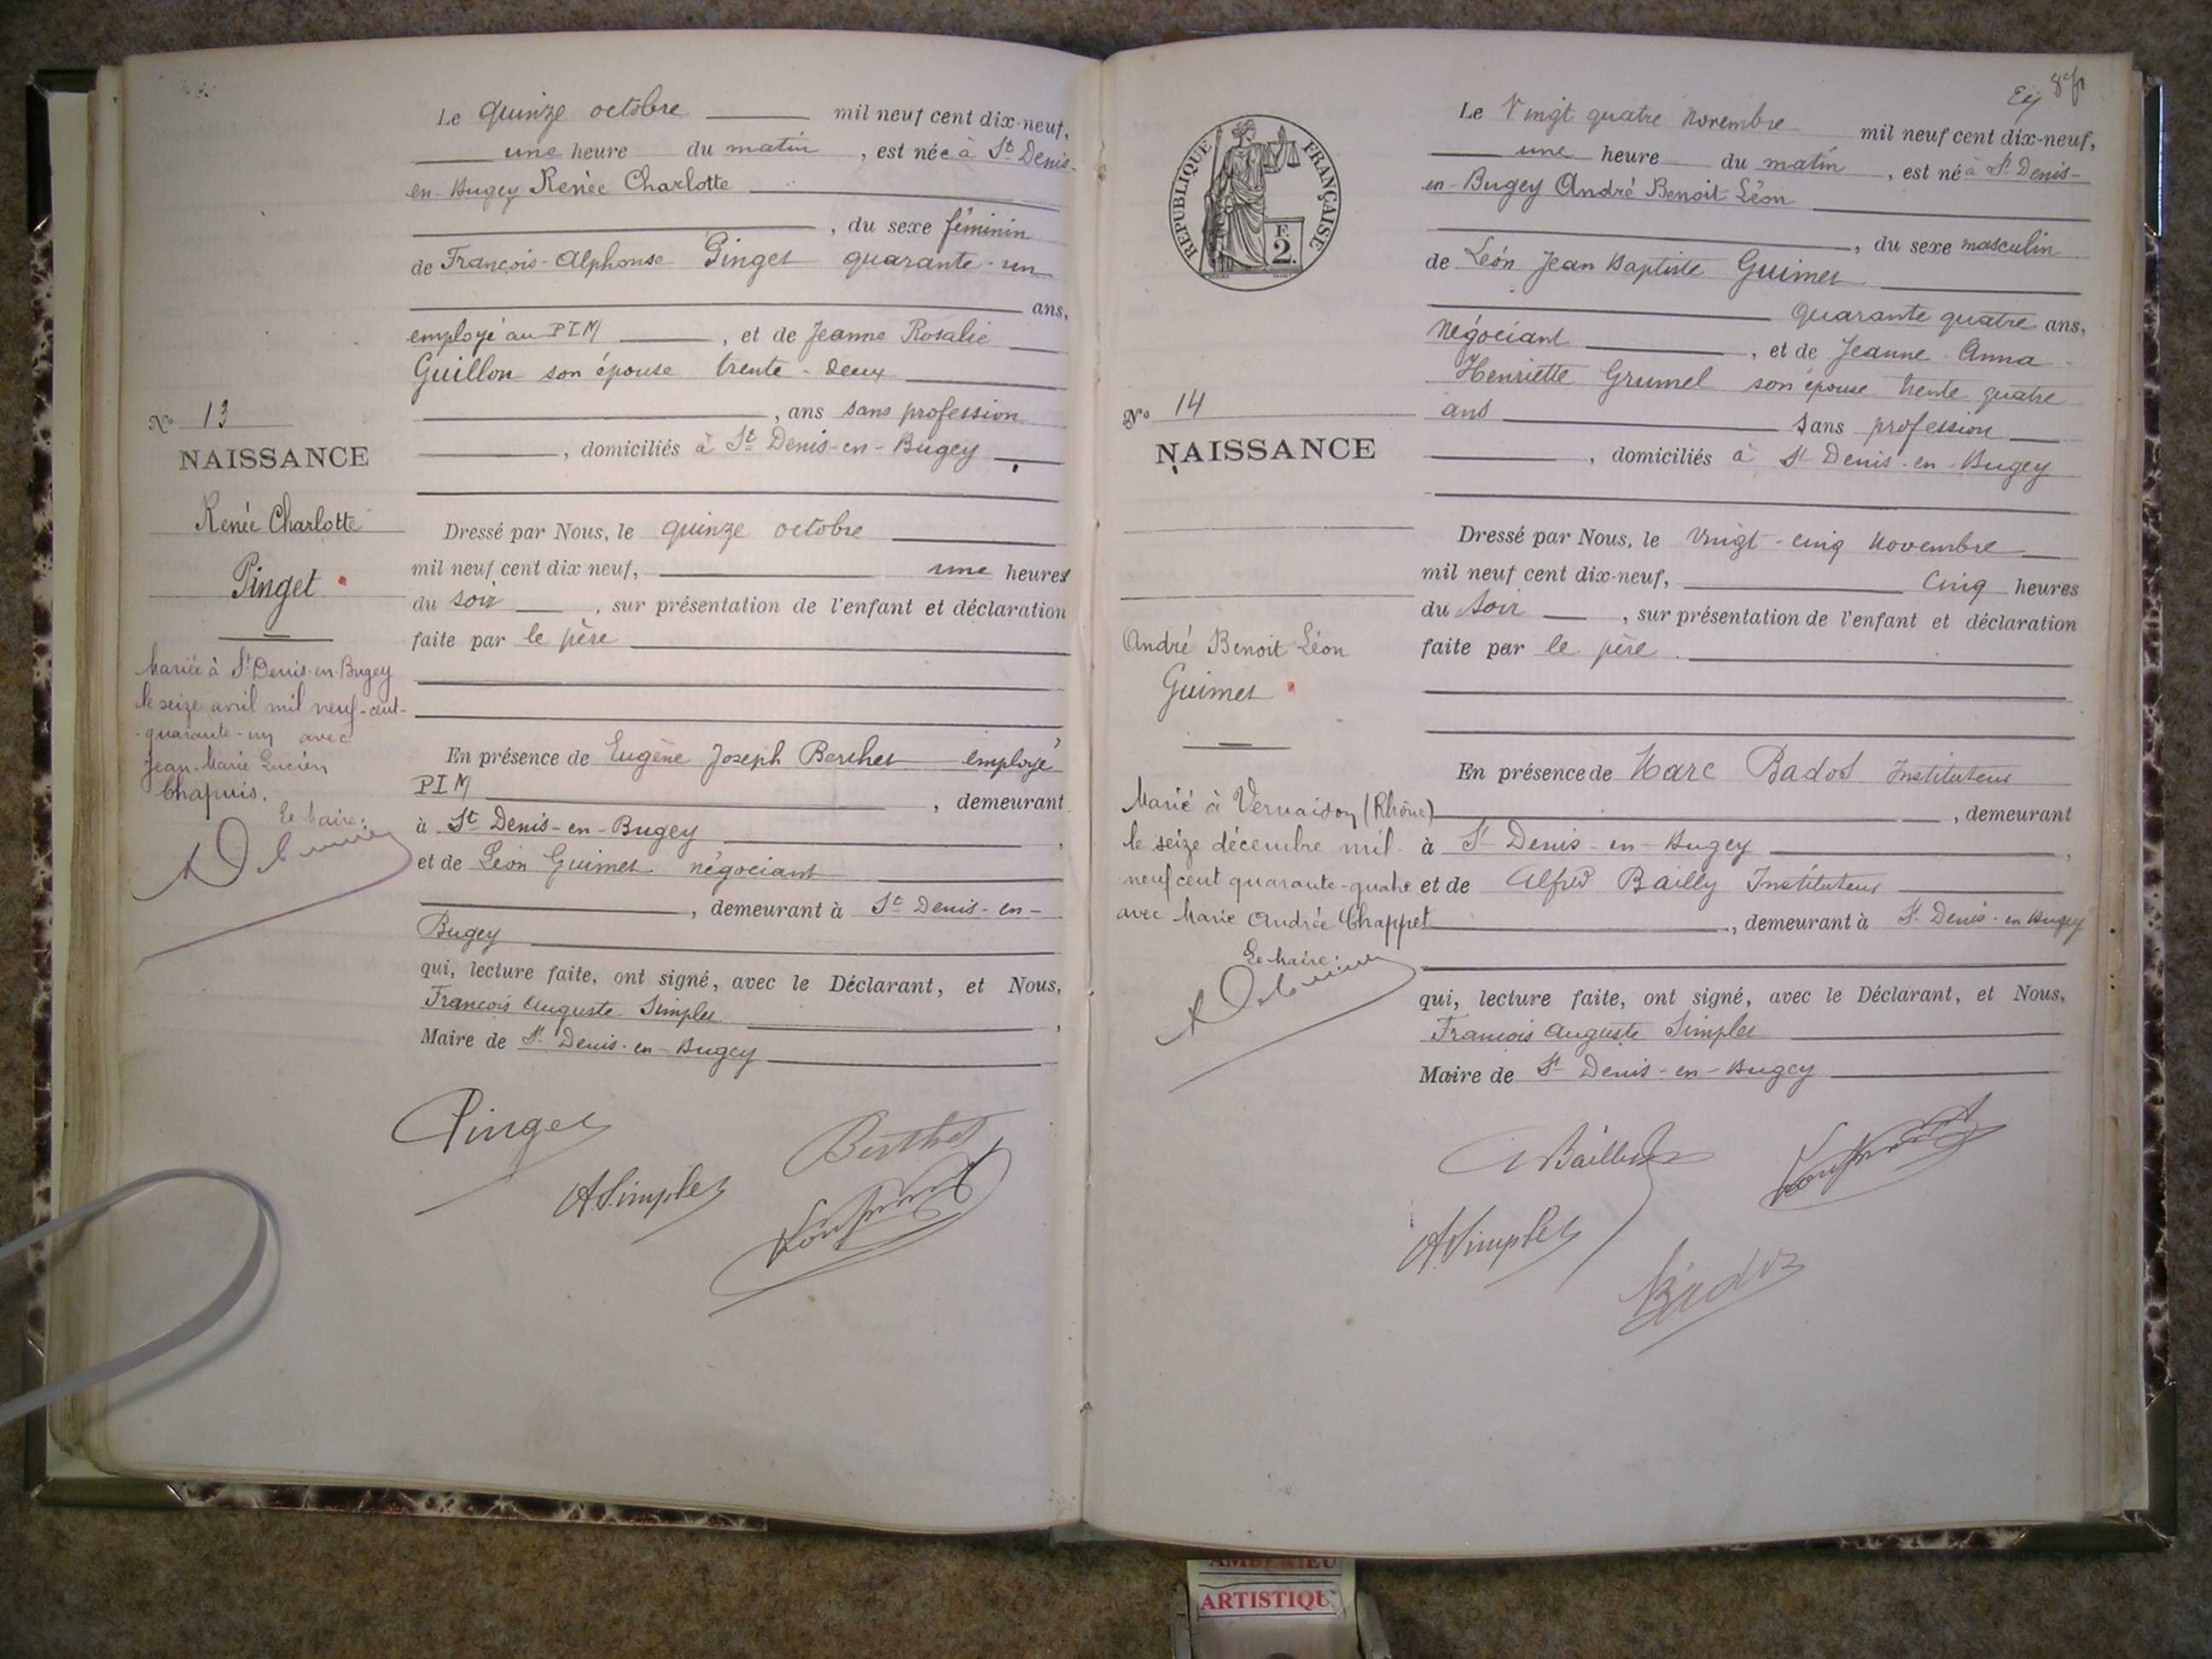 Le quinze octobre mil neuf cent dix-neuf,
une heure du matin, est née à St Denis-
en-Bugey Renée Charlotte
, du sexe féminin
de François-Alphonse Pinget quarante-un
ans,
employé au PLM, et de Jeanne Rosalie
Guillon son épouse trente-deux
, ans sans profession
, domiciliés à St Denis-en-Bugey
No 13
NAISSANCE
Renée Charlotte
Pinget
Mariée à St Denis-en-Bugey
le seize avril mil neuf-cent-
-quarante-un avec
Jean-Marie Lucien
Chapuis.
Le Maire:
Dressé par Nous, le quinze octobre
mil neuf cent dix neuf, une heures
du soir, sur présentation de l'enfant et déclaration
faite par le père
En présence de Eugène Joseph Berthet employé
PLM, demeurant
à St Denis-en-Bugey,
et de Léon Guimet négociant
, demeurant à St Denis-en-
Bugey
qui, lecture faite, ont signé, avec le Déclarant, et Nous,
François Auguste Simplet,
Maire de St Denis-en-Bugey
Pinget
Berthet
A. Simplet
RÉPUBLIQUE FRANÇAISE
F.
2.
Le Vingt quatre Novembre mil neuf cent dix-neuf,
une heure du matin, est né à St Denis-
en-Bugey André Benoit Léon
, du sexe masculin
de Léon Jean Baptiste Guimet
Quarante quatre ans,
Négociant, et de Jeanne Anna
Henriette Grumel son épouse trente quatre
ans Sans profession
, domiciliés à St Denis-en-Bugey
No 14
NAISSANCE
André Benoit Léon
Guimet
Marié à Vernaison (Rhône)
le seize décembre mil
neuf cent quarante-quatre
avec Marie Andrée Chappet
Le Maire:
Dressé par Nous, le Vingt-cinq Novembre
mil neuf cent dix-neuf, Cinq heures
du Soir, sur présentation de l'enfant et déclaration
faite par le père.
En présence de Marc Badot Instituteur
, demeurant
à St Denis-en-Bugey,
et de Alfred Bailly Instituteur
, demeurant à St Denis-en Bugey
qui, lecture faite, ont signé, avec le Déclarant, et Nous,
François Auguste Simplet
Maire de St Denis-en-Bugey
A Bailly
A. Simplet
Badoz
AMBERIEU
ARTISTIQU